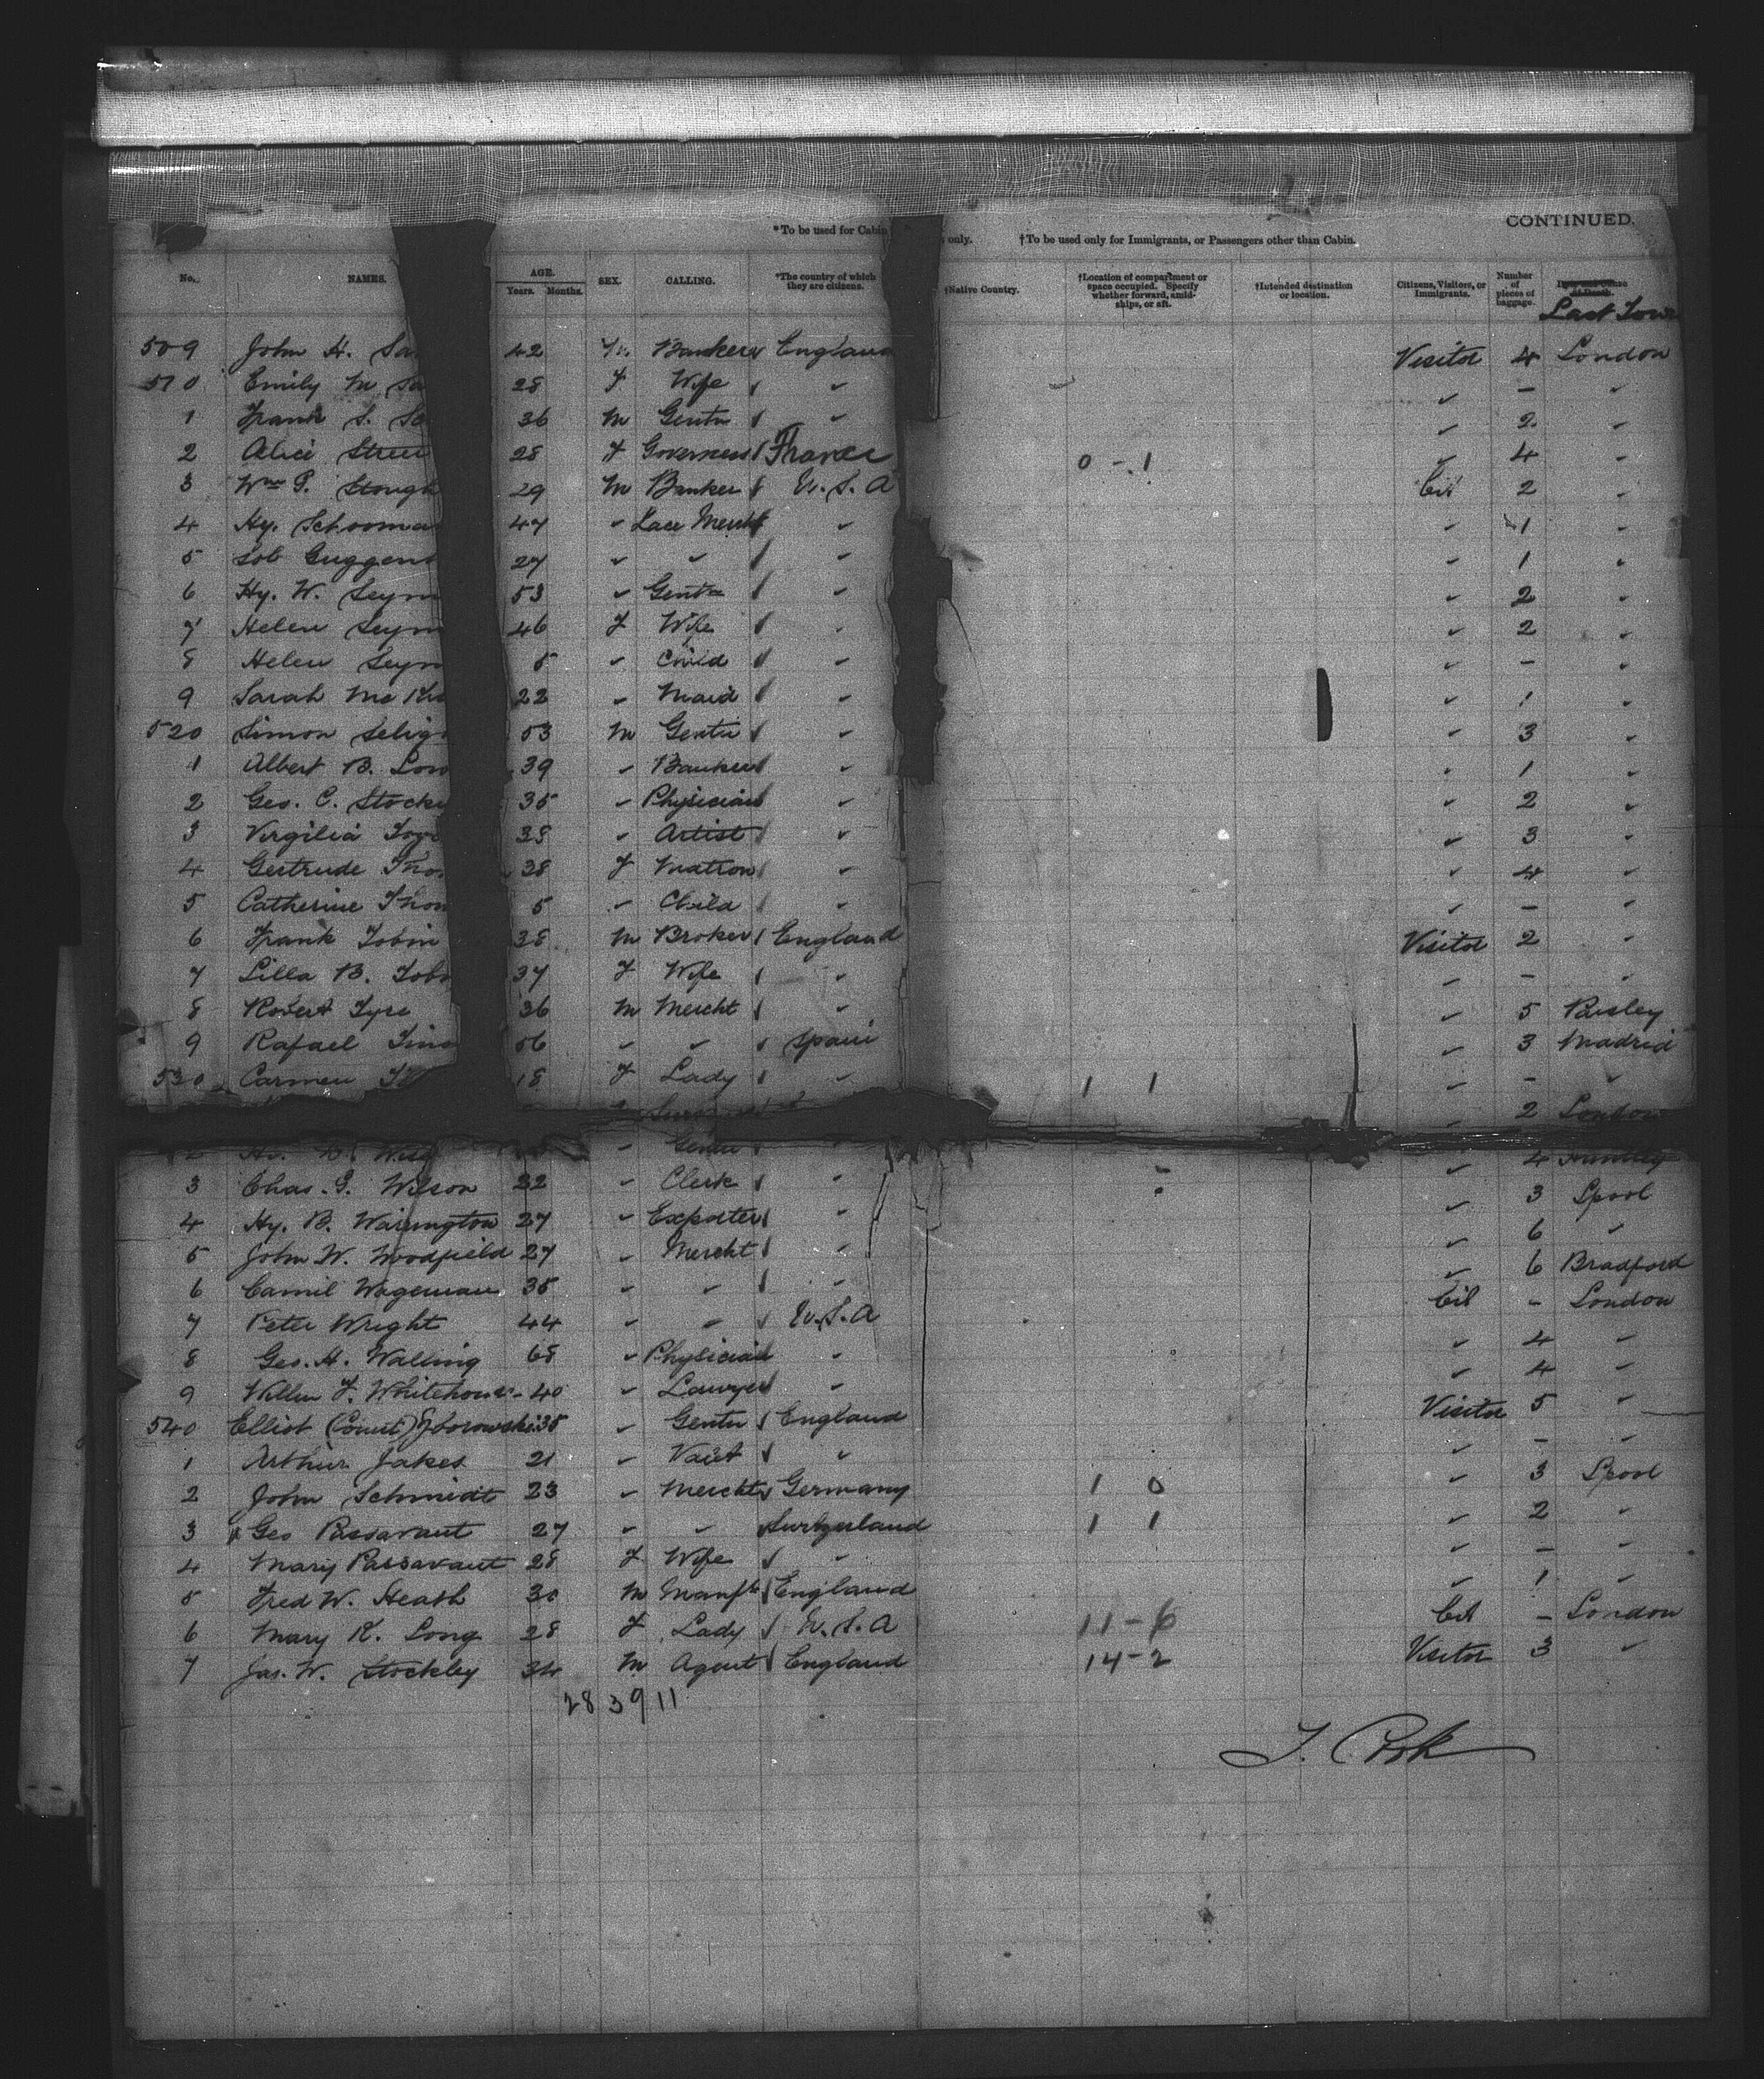 CONTINUED.
*To be used for Cabin only. †To be used only for Immigrants, or Passengers other than Cabin.
No. NAMES. AGE. Years. Months. SEX. CALLING. *The country of which they are citizens. †Native Country. †Location of compartment or space occupied. Specify whether forward, amidships, or aft. †Intended destination or location. Citizens, Visitors, or Immigrants. Number of pieces of baggage. Last Town
509 John H. Sa 42 M Banker England Visitor 4 London
510 Emily M Sa 28 F Wife " " – "
1 Frank S. 36 M Gentn " " 2 "
2 Alice Stree 28 F Governess France 0 - 1 " 4 "
3 Wm P. Stough 29 M Banker U.S.A Cit 2 "
4 Hy. Schooma 47 " Lace Mercht " " 1 "
5 Sob Guggen 27 " " " " 1 "
6 Hy. W. Seym 53 " Gentn " " 2 "
7 Helen Seym 46 F Wife " " 2 "
8 Helen Seym 5 " Child " " – "
9 Sarah Mc 22 " Maid " " 1 "
520 Simon Selig 53 M Gentn " " 3 "
1 Albert B. Low 39 " Banker " " 1 "
2 Geo. C. Stock 35 " Physician " " 2 "
3 Virgilia 38 " Artist " " 3 "
4 Gertrude Tho 38 F Matron " " 4 "
5 Catherine Thom 5 " Child " " – "
6 Frank Tobin 38 M Broker England Visitor 2 "
7 Lilla B. Tob 37 F Wife " " – "
8 Robert Tyre 36 M Mercht " " 5 Paisley
9 Rafael Tino 56 " " Spain " 3 Madrid
530 Carmen 18 F Lady " 1 1 " – "
" 2 London
2 " Gentn " " 4
3 Chas. G. Wilson 22 " Clerk " " 3 Lpool
4 Hy. B. Warrington 27 " Exporter " " 6 "
5 John W. Woodfield 27 " Mercht " " 6 Bradford
6 Camil Wageman 35 " " " Cit – London
7 Peter Wright 44 " " U.S.A " 4 "
8 Geo. H. Walling 68 " Physician " " 4 "
9 Willm F. Whitehouse 40 " Lawyer " Visitor 5 "
540 Elliot (Count) Zborowski 35 " Gentn England " – "
1 Arthur Jakes 21 " Valet " " 3 Lpool
2 John Schmidt 23 " Mercht Germany 1 0 " 2 "
3 Geo Passavant 27 " " Switzerland 1 1 " – "
4 Mary Passavant 28 F Wife " " 1 "
5 Fred W. Heath 30 M Manftr England Cit – London
6 Mary K. Long 28 F Lady U.S.A 11 - 6 Visitor 3 "
7 Jas. W. Stockley 34 M Agent England 14 - 2
28 39 11